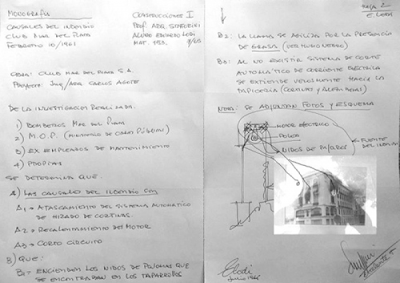 MONOGRAFIA
CAUSALES DEL INCENDIO
CLUB MAR DEL PLATA
FEBRERO 10/1961
CONSTRUCCIONES I
PROF. ARQ.
ALUMNO
MAT.
OBRA: CLUB MAR DEL PLATA S.A.
PROYECTO: ING/ARQ. CARLOS AGOTE
DE LA INVESTIGACION REALIZADA
1) BOMBEROS MAR DEL PLATA
2) M.O.P. (MINISTERIO DE OBRAS PÚBLICAS)
3) EX EMPLEADOS DE MANTENIMIENTO
4) PROPIAS
SE DETERMINA QUE
A) LAS CAUSALES DEL INCENDIO SON
A1 = ATASCAMIENTO DEL SISTEMA AUTOMATICO
DE IZADO DE CORTINAS.
A2 = RECALENTAMIENTO DEL MOTOR
A3 = CORTO CIRCUITO
B) QUE:
B1 = ENCIENDEN LOS NIDOS DE PALOMAS QUE
SE ENCONTRABAN EN LOS TAPARROLLOS
HOJA 2
B2: LA LLAMA SE AVIVA POR LA PRESENCIA
DE GRASA
B3: AL NO EXISTIR SISTEMA DE CORTE
AUTOMATICO DE CORRIENTE ELECTRICA
SE EXTIENDE VELOZMENTE HACIA LA
TAPICERIA (CORTINAS Y ALFOMBRAS)
NOTA: SE ADJUNTAN FOTOS Y ESQUEMA
MOTOR ELECTRICO
NIDOS DE PALOMAS
FUENTE
DEL INCENDIO